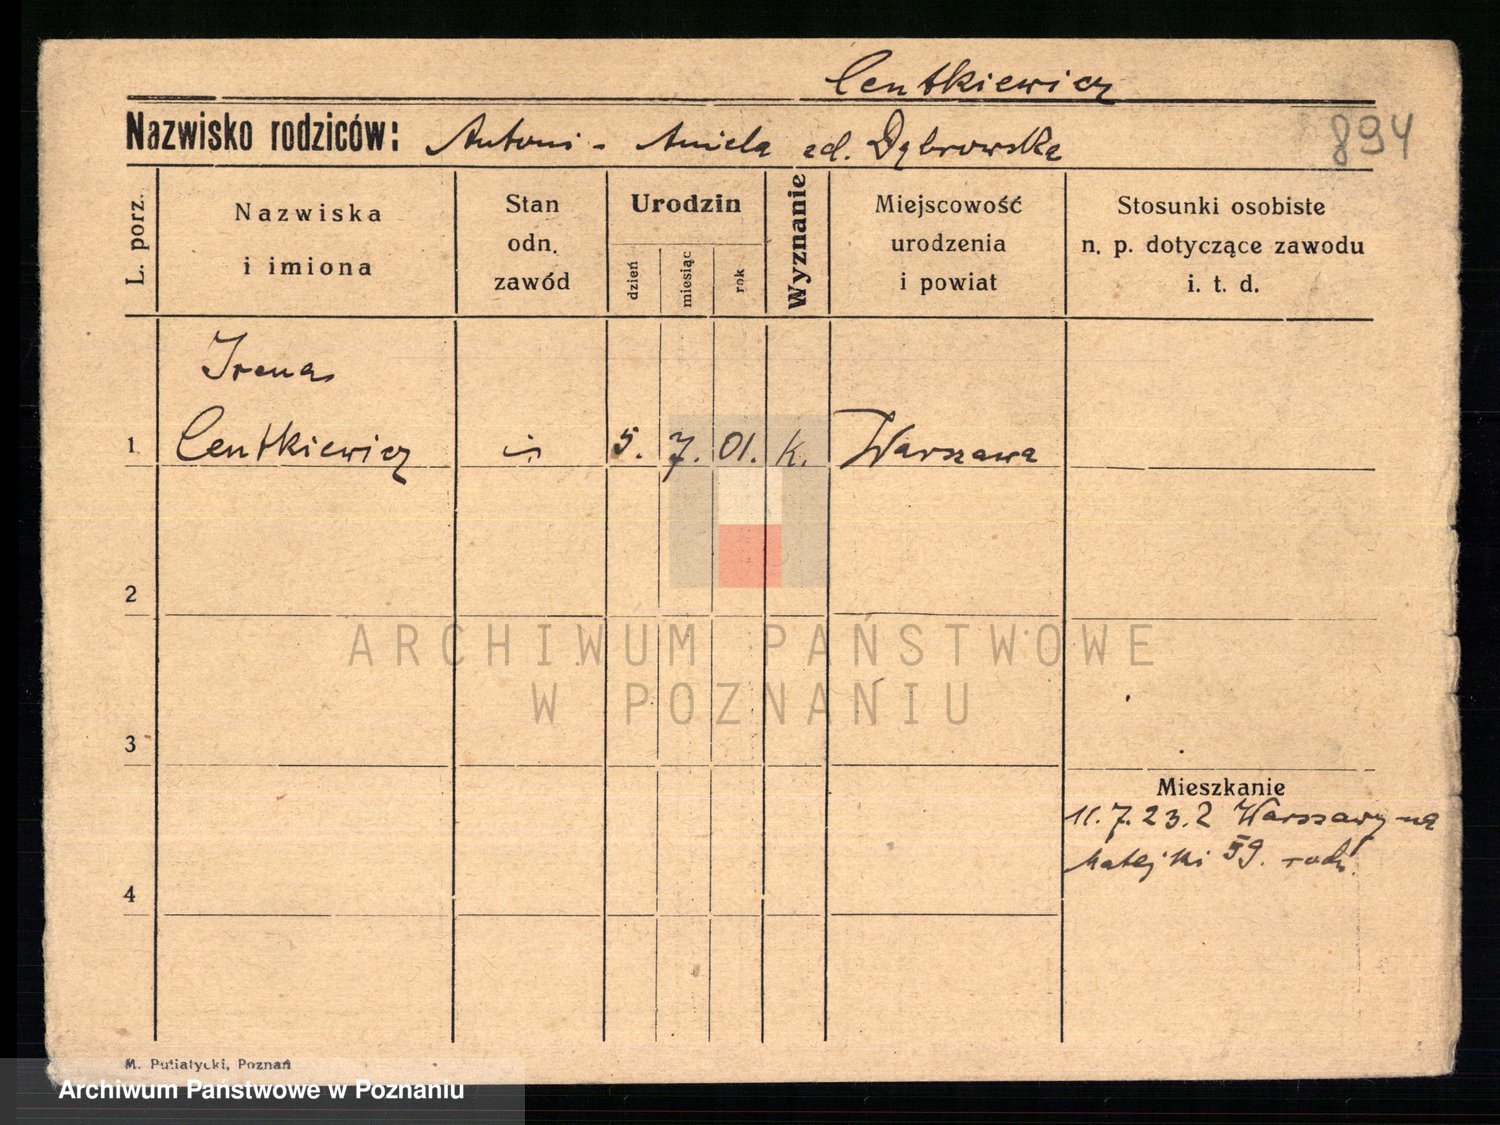 Centkiewicz
Nazwisko rodziców: Antoni - Aniela zd. Dąbrowska
894
L. porz.
Nazwiska
i imiona
Stan
odn.
zawód
Urodzin
dzień
miesiąc
rok
Wyznanie
Miejscowość
urodzenia
i powiat
Stosunki osobiste
n. p. dotyczące zawodu
i. t. d.
Irena
1 Centkiewicz 5. 7. 01. k. Warszawa
2
ARCHIWUM PAŃSTWOWE
W POZNANIU
3
Mieszkanie
11.7.23. z Warszawy na
Matejki 59.
4
M. Putiatycki, Poznań
Archiwum Państwowe w Poznaniu